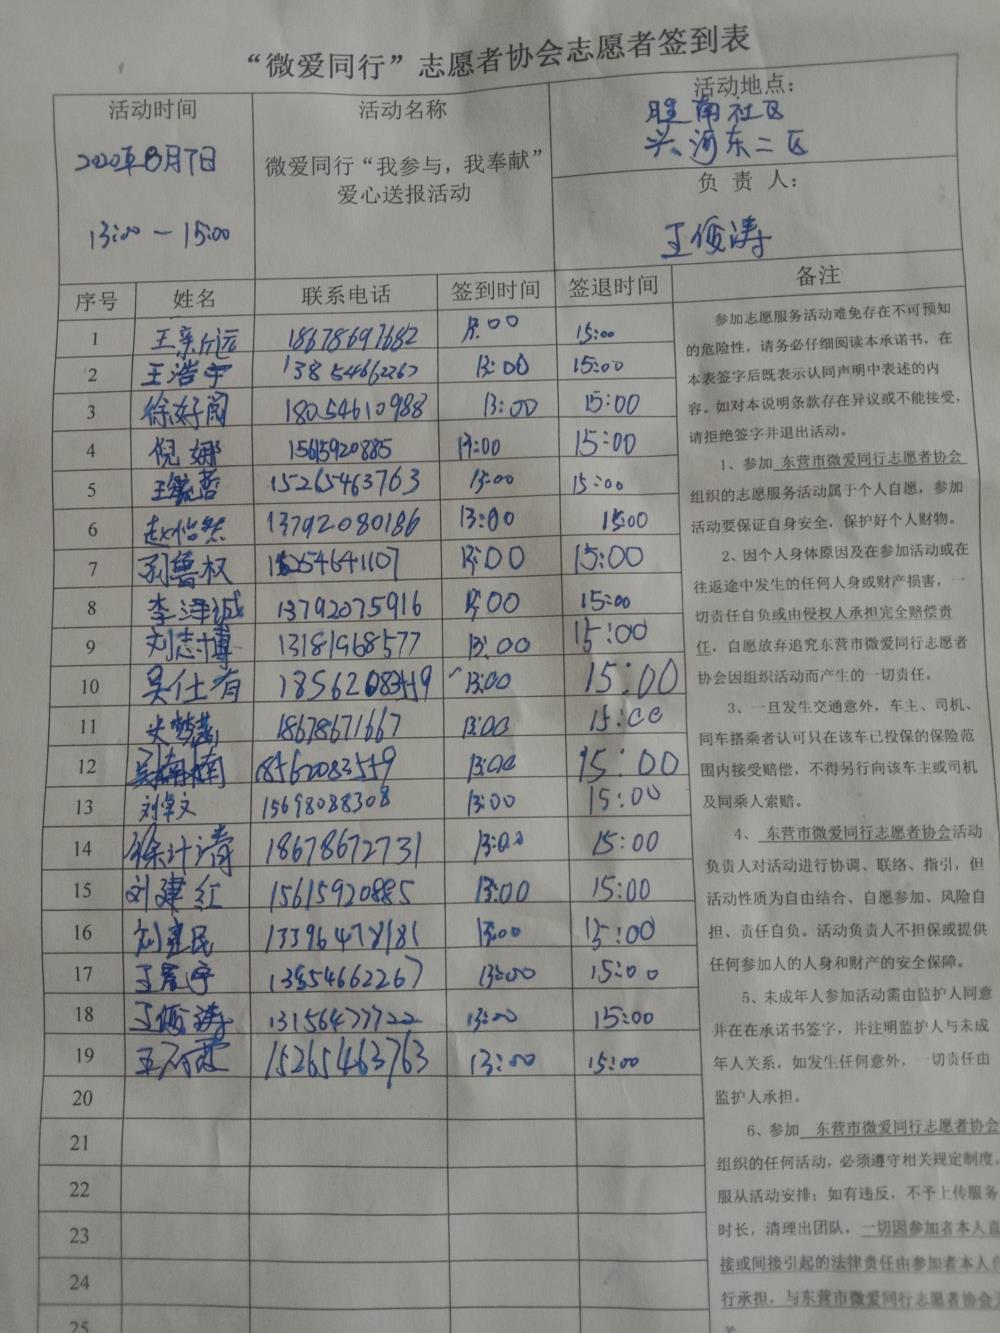 “微爱同行”志愿者协会志愿者签到表
活动时间
2020年8月7日
13:00 — 15:00
活动名称
微爱同行“我参与，我奉献”
爱心送报活动
活动地点：
胜南社区
兴河东二区
负 责 人：
王俊涛
序号 姓名 联系电话 签到时间 签退时间 备注
1 18678697682 13:00 15:00
2 王浩宇 13854662267 13:00 15:00
3 18054610988 13:00 15:00
4 倪娜 15615920885 13:00 15:00
5 15265463763 13:00 15:00
6 赵怡然 13792080186 13:00 15:00
7 孙鲁权 15254641107 13:00 15:00
8 李泽诚 13792075916 13:00 15:00
9 刘志博 13181968577 13:00 15:00
10 吴仕有 13:00 15:00
11 18678671667 13:00 15:00
12 吴楠楠 18562083559 13:00 15:00
13 刘卓文 15698088308 13:00 15:00
14 徐计涛 18678672731 13:00 15:00
15 刘建红 15615920885 13:00 15:00
16 刘建民 13396478181 13:00 15:00
17 13854662267 13:00 15:00
18 王俊涛 13156477722 13:00 15:00
19 15265463763 13:00 15:00
20
21
22
23
24
25
参加志愿服务活动难免存在不可预知
的危险性，请务必仔细阅读本承诺书，在
本表签字后既表示认同声明中表述的内
容。如对本说明条款存在异议或不能接受，
请拒绝签字并退出活动。
1、参加 东营市微爱同行志愿者协会
组织的志愿服务活动属于个人自愿，参加
活动要保证自身安全，保护好个人财物。
2、因个人身体原因及在参加活动或在
往返途中发生的任何人身或财产损害，一
切责任自负或由侵权人承担完全赔偿责
任，自愿放弃追究东营市微爱同行志愿者
协会因组织活动而产生的一切责任。
3、一旦发生交通意外，车主、司机、
同车搭乘者认可只在该车已投保的保险范
围内接受赔偿，不得另行向该车主或司机
及同乘人索赔。
4、 东营市微爱同行志愿者协会活动
负责人对活动进行协调、联络、指引，但
活动性质为自由结合、自愿参加、风险自
担、责任自负。活动负责人不担保或提供
任何参加人的人身和财产的安全保障。
5、未成年人参加活动需由监护人同意
并在在承诺书签字，并注明监护人与未成
年人关系，如发生任何意外，一切责任由
监护人承担。
6、参加 东营市微爱同行志愿者协会
组织的任何活动，必须遵守相关规定制度，
服从活动安排；如有违反，不予上传服务
时长，清理出团队，一切因参加者本人直
接或间接引起的法律责任由参加者本人
行承担，与东营市微爱同行志愿者协会